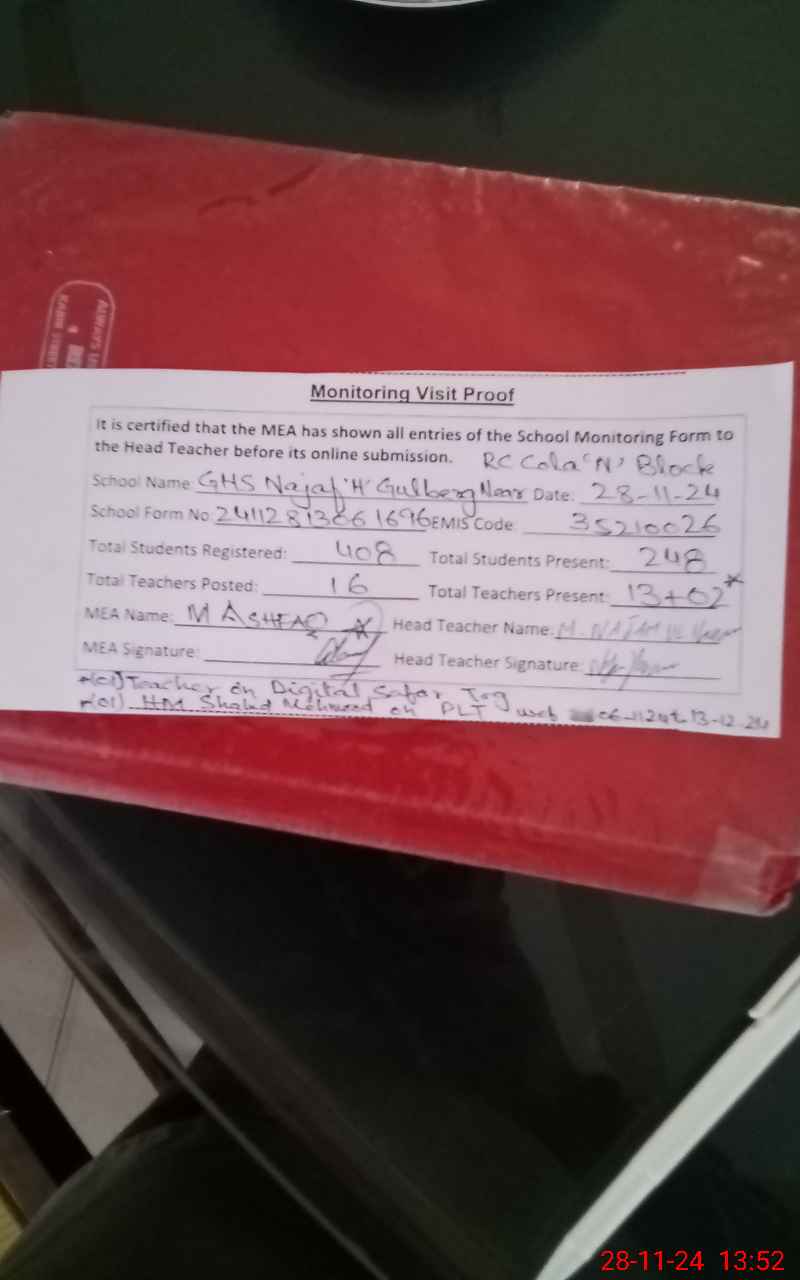 ALWAYS
Monitoring Visit Proof
It is certified that the MEA has shown all entries of the School Monitoring Form to
the Head Teacher before its online submission. RC Cola 'N' Block
School Name: GHS Najaf 'H' Gulberg Near Date: 28-11-24
School Form No: EMIS Code: 35210026
Total Students Registered: 408 Total Students Present: 248
Total Teachers Posted: 16 Total Teachers Present: 13+02*
MEA Name: M ASHFAQ Head Teacher Name:
MEA Signature: Head Teacher Signature:
*(01) Teacher on Digital Safar Trg
*(01) HM Shahid Mehmood on PLT 13-12-24
28-11-24 13:52